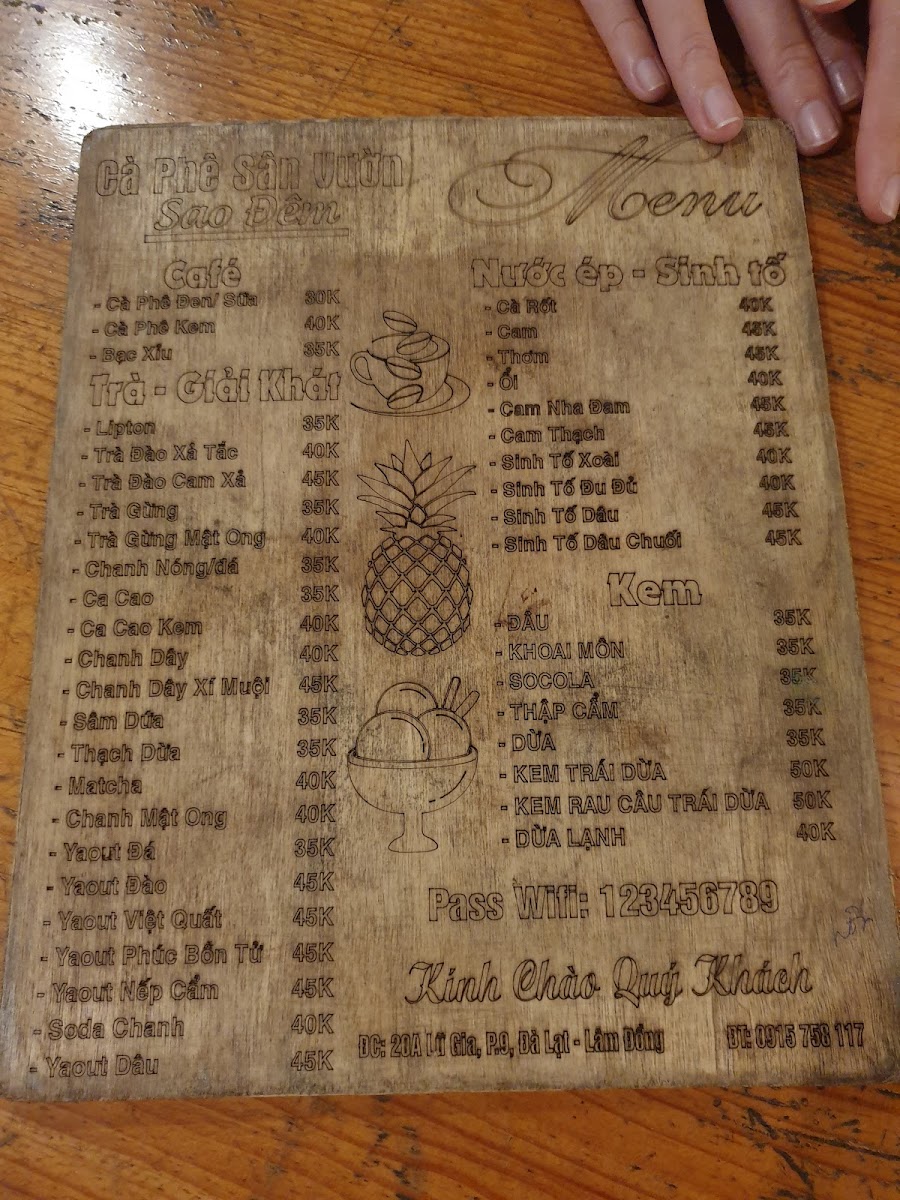 Cà Phê Sân Vườn
Sao Đêm
Menu
Café
- Cà Phê Đen/ Sữa 30K
- Cà Phê Kem 40K
- Bạc Xỉu 35K
Trà - Giải Khát
- Lipton 35K
- Trà Đào Xả Tắc 40K
- Trà Đào Cam Xả 45K
- Trà Gừng 35K
- Trà Gừng Mật Ong 40K
- Chanh Nóng/đá 35K
- Ca Cao 35K
- Ca Cao Kem 40K
- Chanh Dây 40K
- Chanh Dây Xí Muội 45K
- Sâm Dứa 35K
- Thạch Dừa 35K
- Matcha 40K
- Chanh Mật Ong 40K
- Yaout Đá 35K
- Yaout Đào 45K
- Yaout Việt Quất 45K
- Yaout Phúc Bồn Tử 45K
- Yaout Nếp Cẩm 45K
- Soda Chanh 40K
- Yaout Dâu 45K
Nước ép - Sinh tố
- Cà Rốt 40K
- Cam 45K
- Thơm 45K
- Ổi 40K
- Cam Nha Đam 45K
- Cam Thạch 45K
- Sinh Tố Xoài 40K
- Sinh Tố Đu Đủ 40K
- Sinh Tố Dâu 45K
- Sinh Tố Dâu Chuối 45K
Kem
- DÂU 35K
- KHOAI MÔN 35K
- SOCOLA 35K
- THẬP CẨM 35K
- DỪA 35K
- KEM TRÁI DỪA 50K
- KEM RAU CÂU TRÁI DỪA 50K
- DỪA LẠNH 40K
Pass Wifi: 123456789
Kính Chào Quý Khách
ĐC: 20A Lữ Gia, P.9, Đà Lạt - Lâm Đồng ĐT: 0915 758 117